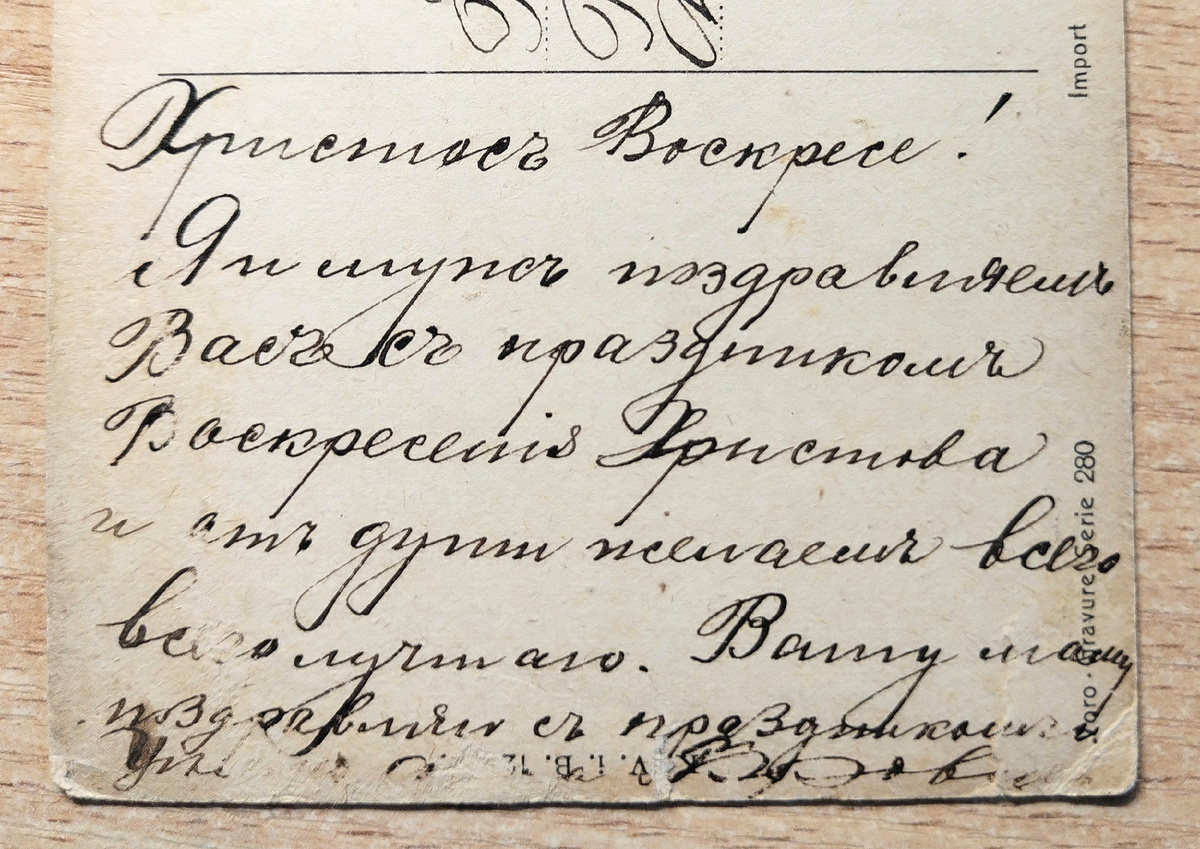 Христосъ Воскресе!
Я и мужъ поздравляемъ
Васъ съ праздникомъ
Воскресенія Христова
и отъ души желаемъ всего
всего лучшаго. Вашу маму
поздравляю съ праздникомъ
V. i. B. 12
Import
Gravure Serie 280